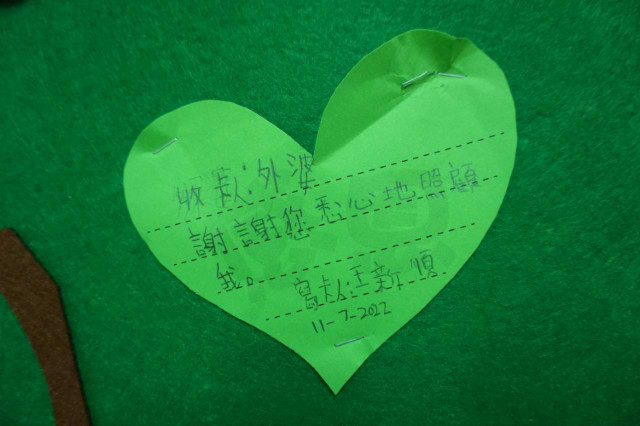 收卡人:外婆
謝謝您悉心地照顧
我。
寫卡人:王新順
11-7-2022